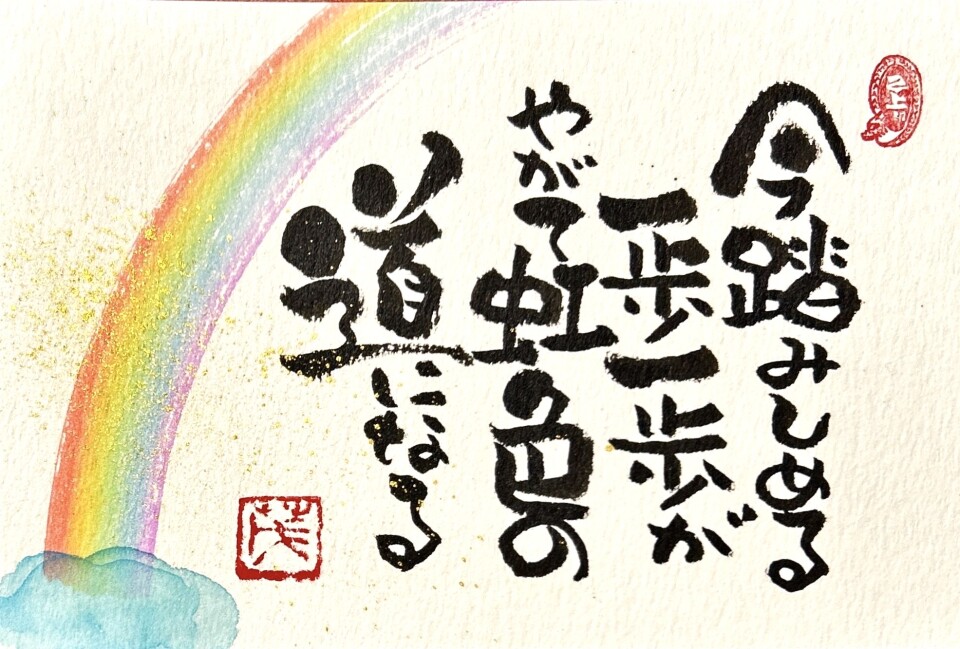 今踏みしめる
一歩一歩が
やがて虹色の
道になる
茂